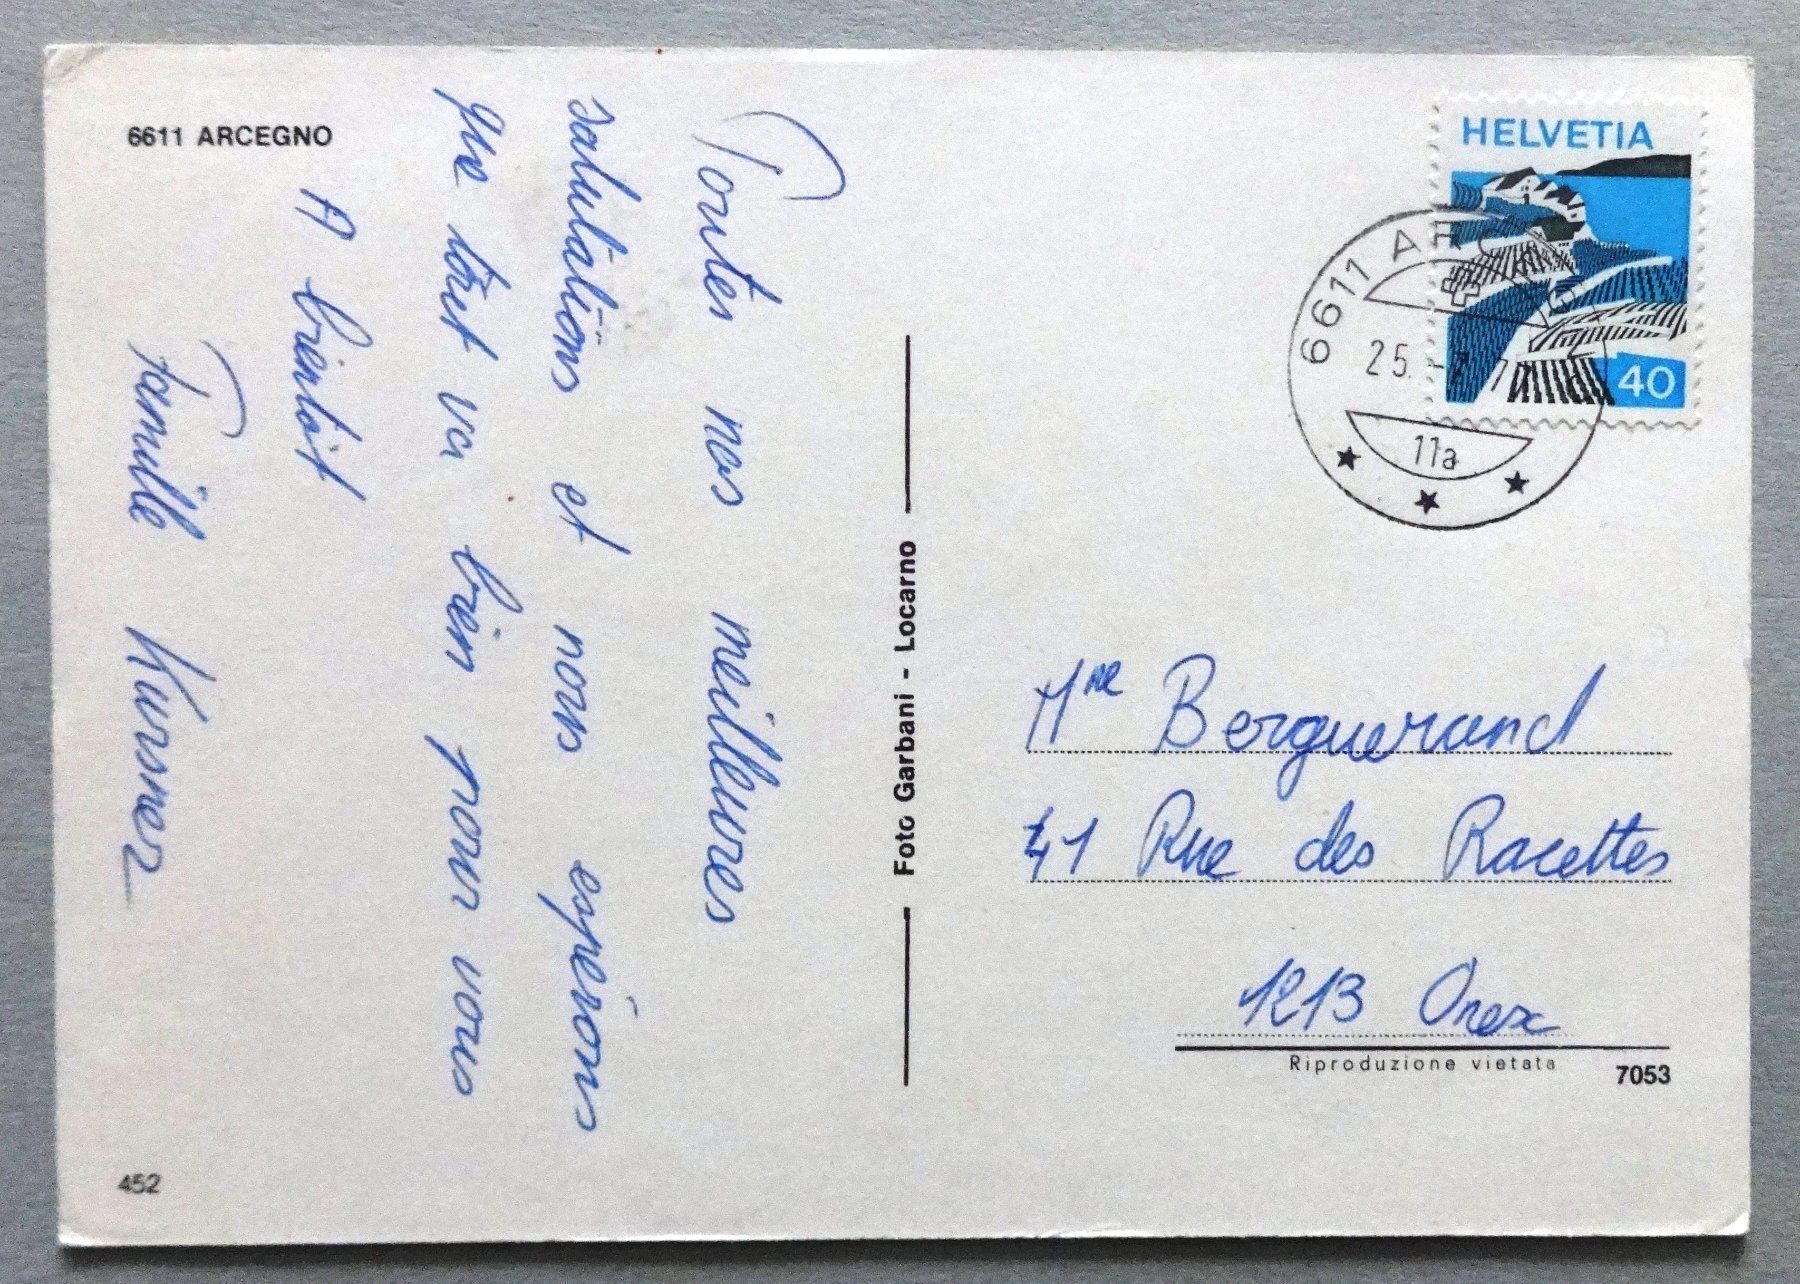 6611 ARCEGNO
Toutes nos meilleures
salutations et nous espérons
que tout va bien pour vous
A bientôt
Famille
Foto Garbani - Locarno
HELVETIA
40
6611 ARCEGNO
25.
11a
Mme Berguerand
41 Rue des Racettes
1213 Onex
Riproduzione vietata
7053
452